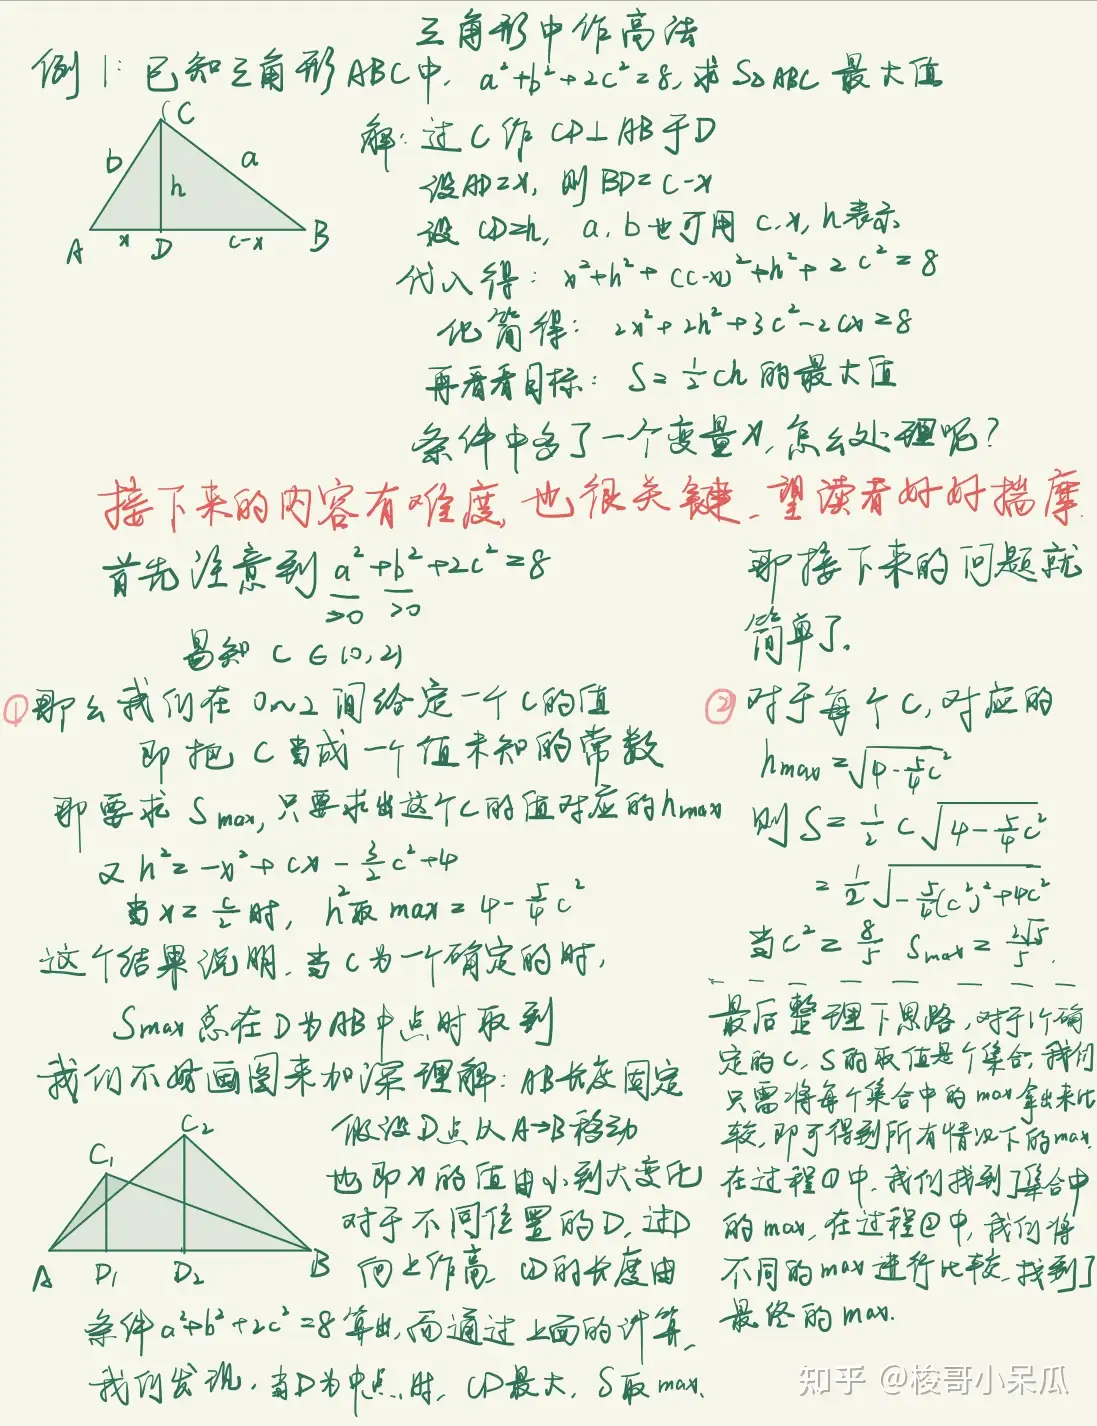 三角形中作高法
例1：已知三角形ABC中，a²+b²+2c²=8，求S△ABC最大值
C
b
a
h
A
x
D
c-x
B
解：过C作CD⊥AB于D
设AD=x，则BD=c-x
设CD=h，a，b也可用c，x，h表示
代入得：x²+h²+(c-x)²+h²+2c²=8
化简得：2x²+2h²+3c²-2cx=8
再看看目标：S=½ch的最大值
条件中多了一个变量x，怎么处理呢？
接下来的内容有难度，也很关键，望读者好好揣摩.
首先注意到a²+b²+2c²=8
>0 >0
易知 c∈(0,2)
①那么我们在0~2间给定一个c的值
即把c当成一个值未知的常数
那要求Smax，只要求出这个c的值对应的hmax
又h²=-x²+cx-3/2c²+4
当x=c/2时，h²取max=4-5/4c²
这个结果说明，当c为一个确定的时，
Smax总在D为AB中点时取到
我们不妨画图来加深理解：AB长度固定
C₂
C₁
A
D₁
D₂
B
假设D点从A→B移动
也即x的值由小到大变化
对于不同位置的D，过D
向上作高，CD的长度由
条件a²+b²+2c²=8算出，而通过上面的计算，
我们发现，当D为中点时，CD最大，S取max.
那接下来的问题就
简单了.
②对于每个c，对应的
hmax=√(4-5/4c²)
则S=½c√(4-5/4c²)
=½√(-5/4(c²)²+4c²)
当c²=8/5 Smax=2√5/5.
最后整理下思路，对于1个确
定的c，S的取值是个集合，我们
只需将每个集合中的max拿出来比
较，即可得到所有情况下的max.
在过程①中，我们找到了集合中
的max，在过程②中，我们将
不同的max进行比较，找到了
最终的max.
知乎 @梭哥小呆瓜